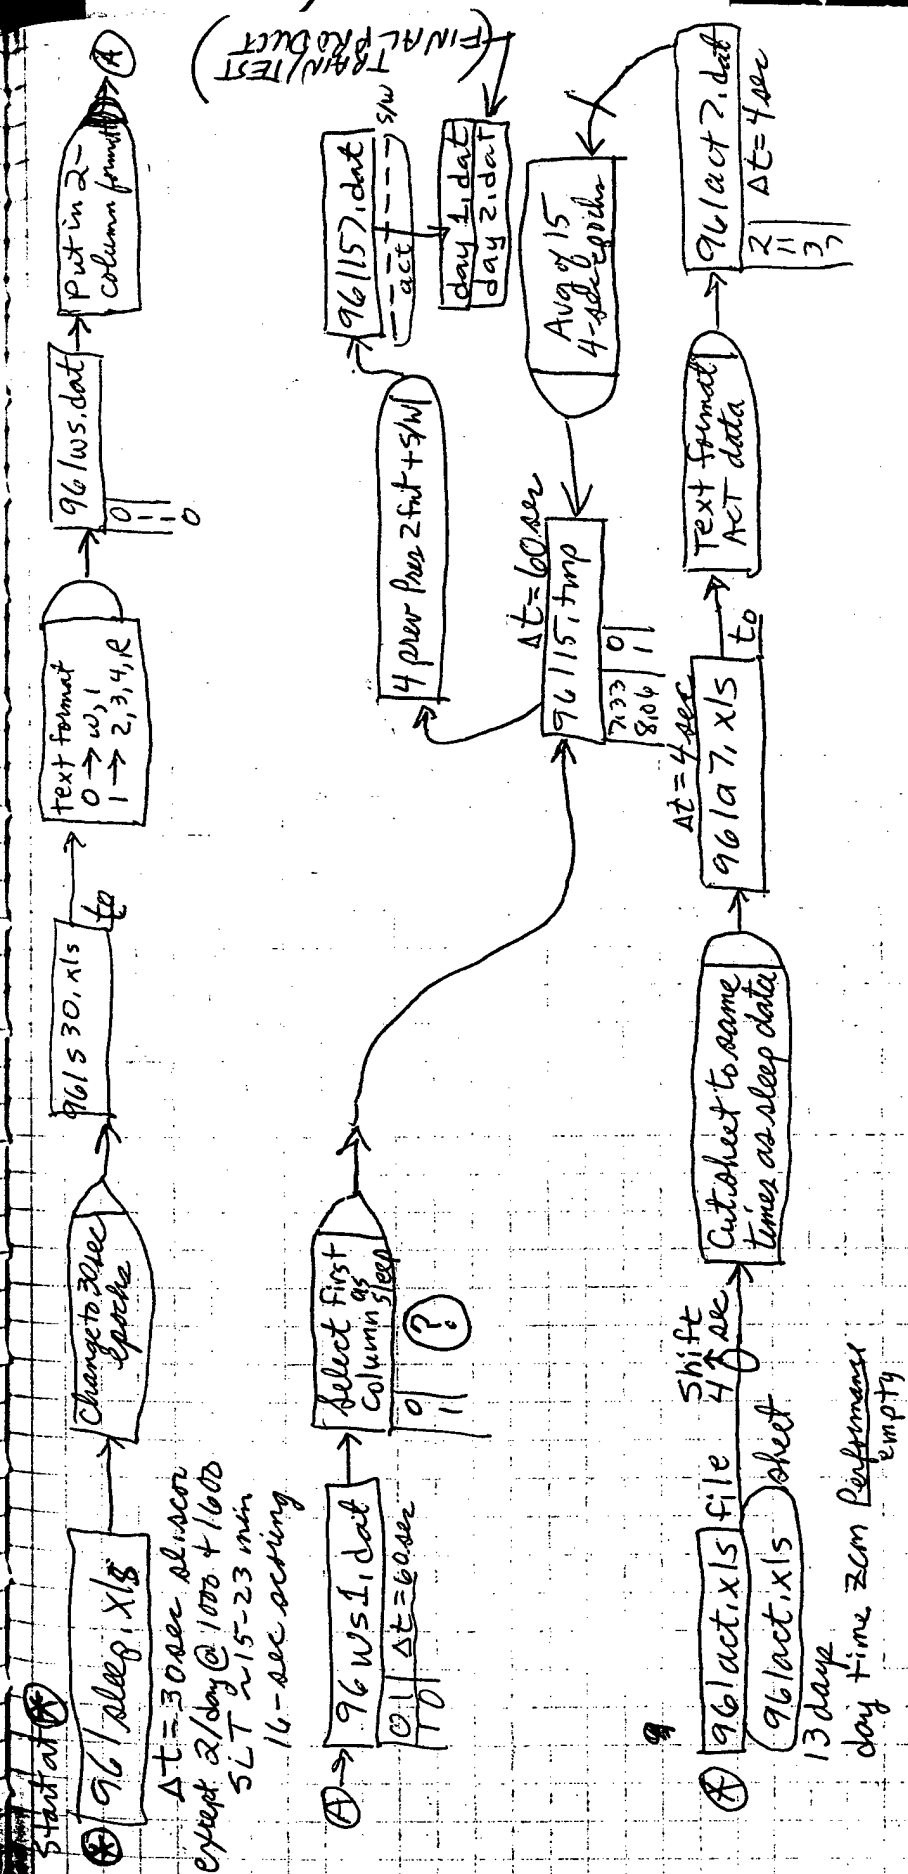 Start at *
* 961sleep.xls
Δt = 30 sec sl. scor
except 2/day @ 1000 + 1600
SLT ~15-23 min
16-sec scoring
Change to 30 sec
epochs
961s30.xls
to
text format
0 → W, 1
1 → 2, 3, 4, R
961ws.dat
0
1
1
0
Put in 2-
column format
A
A →
96ws1.dat
0 1 Δt = 60 sec
1 0 1
Select First
Column as
Sleep
0
1
?
4 prev Pres 2 fut + S/W
961157.dat
act S/W
day 1.dat
day 2.dat
(TRAIN/TEST
FINAL PRODUCT)
Δt = 60 sec
96115.tmp
7.33 0
8.06 1
Avg of 15
4-sec epochs
* 961act.xls file
961act.xls sheet
13 days
day time zcm Performance
empty
Shift
4 sec
Cut sheet to same
times as sleep data
Δt = 4 sec
961a7.xls
to
Text format
ACT data
961act7.dat
Δt = 4 sec
2
11
3
7